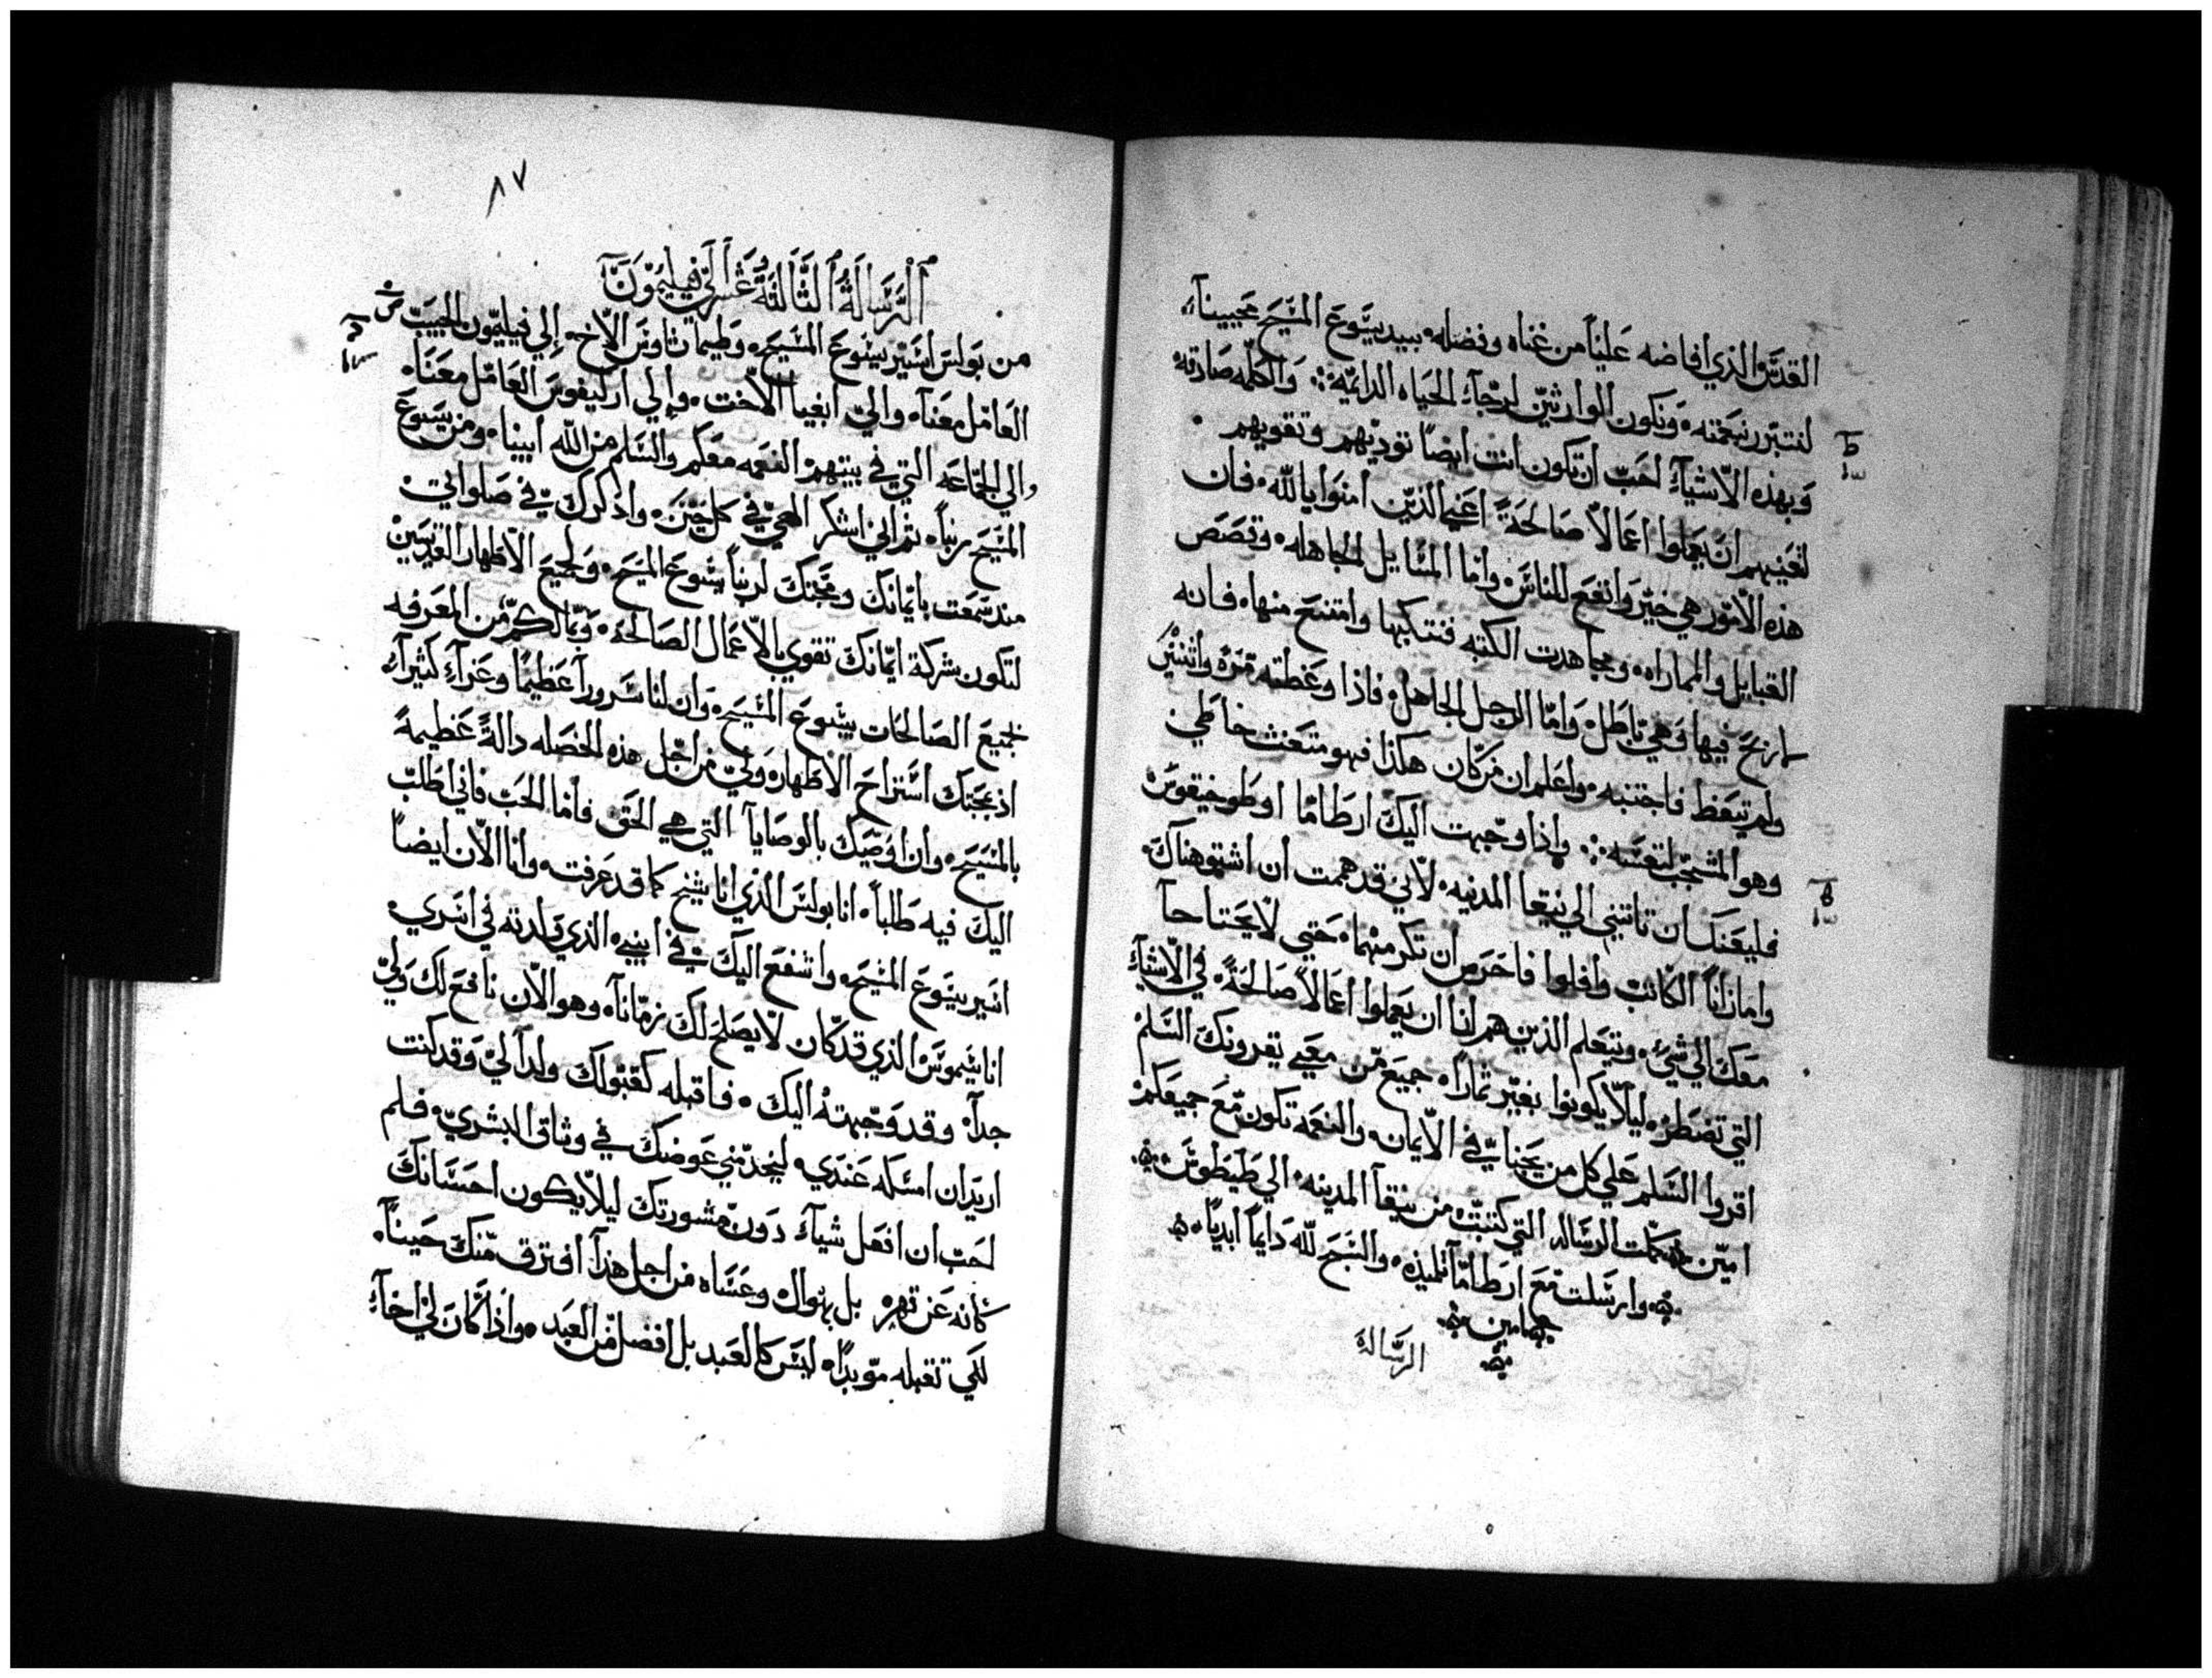 القدس الذي افاضه علينا من غناه وفضله بيد يسوع المسيح محيينا
لنتبرر بنعمته ونكون الوارثين لرجاء الحياه الدايمه والكلمه صادقه
وبهذه الاشياء احب ان تكون انت ايضا تودبهم وتقويهم
لتعنيهم ان يعملوا اعمالا صالحة اعني الذين امنوا بالله فان
هذه الامور هي خير وانفع للناس واما المسايل الجاهله وقصص
القبايل والمماراه ومجاهدت الكتبه فتنكبها وامتنع منها فانه
لا ربح فيها وهي باطل واما الرجل الجاهل فاذا وعظته مره واثنتين
ولم يتعظ فاجتنبه واعلم ان من كان هكذا فهو متعنت خاطي
وهو المشجب لنفسه واذا وجهت اليك ارطاما او طوخيقوس
فليعنك ان تاتيني الي نيقا المدينه لاني قد هممت ان اشتو هناك
واما زانا الكاتب وافلوا فاحرص ان تكرمهما حتي لا يحتاجا
معك الي شي ويتعلم الذين هم لنا ان يعملوا اعمالا صالحة في الاشياء
التي تضطر ليلا يكونوا بغير ثمار جميع من معي يقرونك السلم
اقروا السلم علي كل من يحبنا في الايمان والنعمه تكون مع جميعكم
امين كملت الرساله التي كتبت من نيقا المدينه الي طيطوس
وارسلت مع ارطاما تلميذه والسبح لله دايما ابديا
امين
الرسالة
٨٧
الرسالة الثالثة عشر الي فيليمون
من بولس اسير يسوع المسيح وطيماتاوس الاخ إلي فيليمون الحبيب
العامل معنا والي ابفيا الاخت وإلي ارليفوس العامل معنا
والي الجماعه التي في بيتهم النعمه معكم والسلم من الله ابينا ومن يسوع
المسيح ربنا ثم اني اشكر الهي في كل حين واذكرك في صلواتي
منذ سمعت بايمانك ومحبتك لربنا يسوع المسيح ولجميع الاطهار القديسين
لتكون شركة ايمانك تقوي بالاعمال الصالحه وبمالكم من المعرفه
بجميع الصالحات بيسوع المسيح وان لنا سرورا عظيما وعزآء كثيرا
اذ بمحبتك استراح الاطهار ولي من اجل هذه الخصله دالة عظيمة
بالمسيح وان اوصيك بالوصايا التي هي الحق فاما الحب فاني اطلب
اليك فيه طلبا انا بولس الذي انا شيخ كما قد عرفت وانا الان ايضا
اسير يسوع المسيح واشفع اليك في ابني الذي ولدته في اسري
اناسيموس الذي قد كان لا يصلح لك زمانا وهو الان نافع لك ولي
جدا وقد وجهته اليك فاقبله كقبولك ولدا لي وقد كنت
اريد ان امسكه عندي ليخدمني عوضك في وثاق البشري فلم
احب ان افعل شيا دون مشورتك ليلا يكون احسانك
كانه عن قهر بل بهواك وعساه من اجل هذا افترق منك حينا
لكي تقبله موبدا ليس كالعبد بل افضل من العبد واذا كان لي اخا